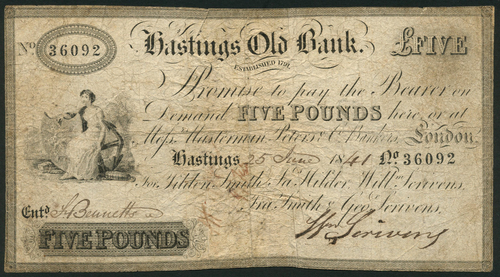 Hastings Old Bank.
£FIVE
No 36092
ESTABLISHED 1791.
Promise to pay the Bearer on
Demand FIVE POUNDS here or at
Messrs Masterman Peters & Co Bankers London
Hastings 25 June 1841 No 36092
For Tilden Smith, Jas Hilder, Willm Scrivens,
Fra Smith & Geo Scrivens.
Entd
Wm Scrivens
FIVE POUNDS